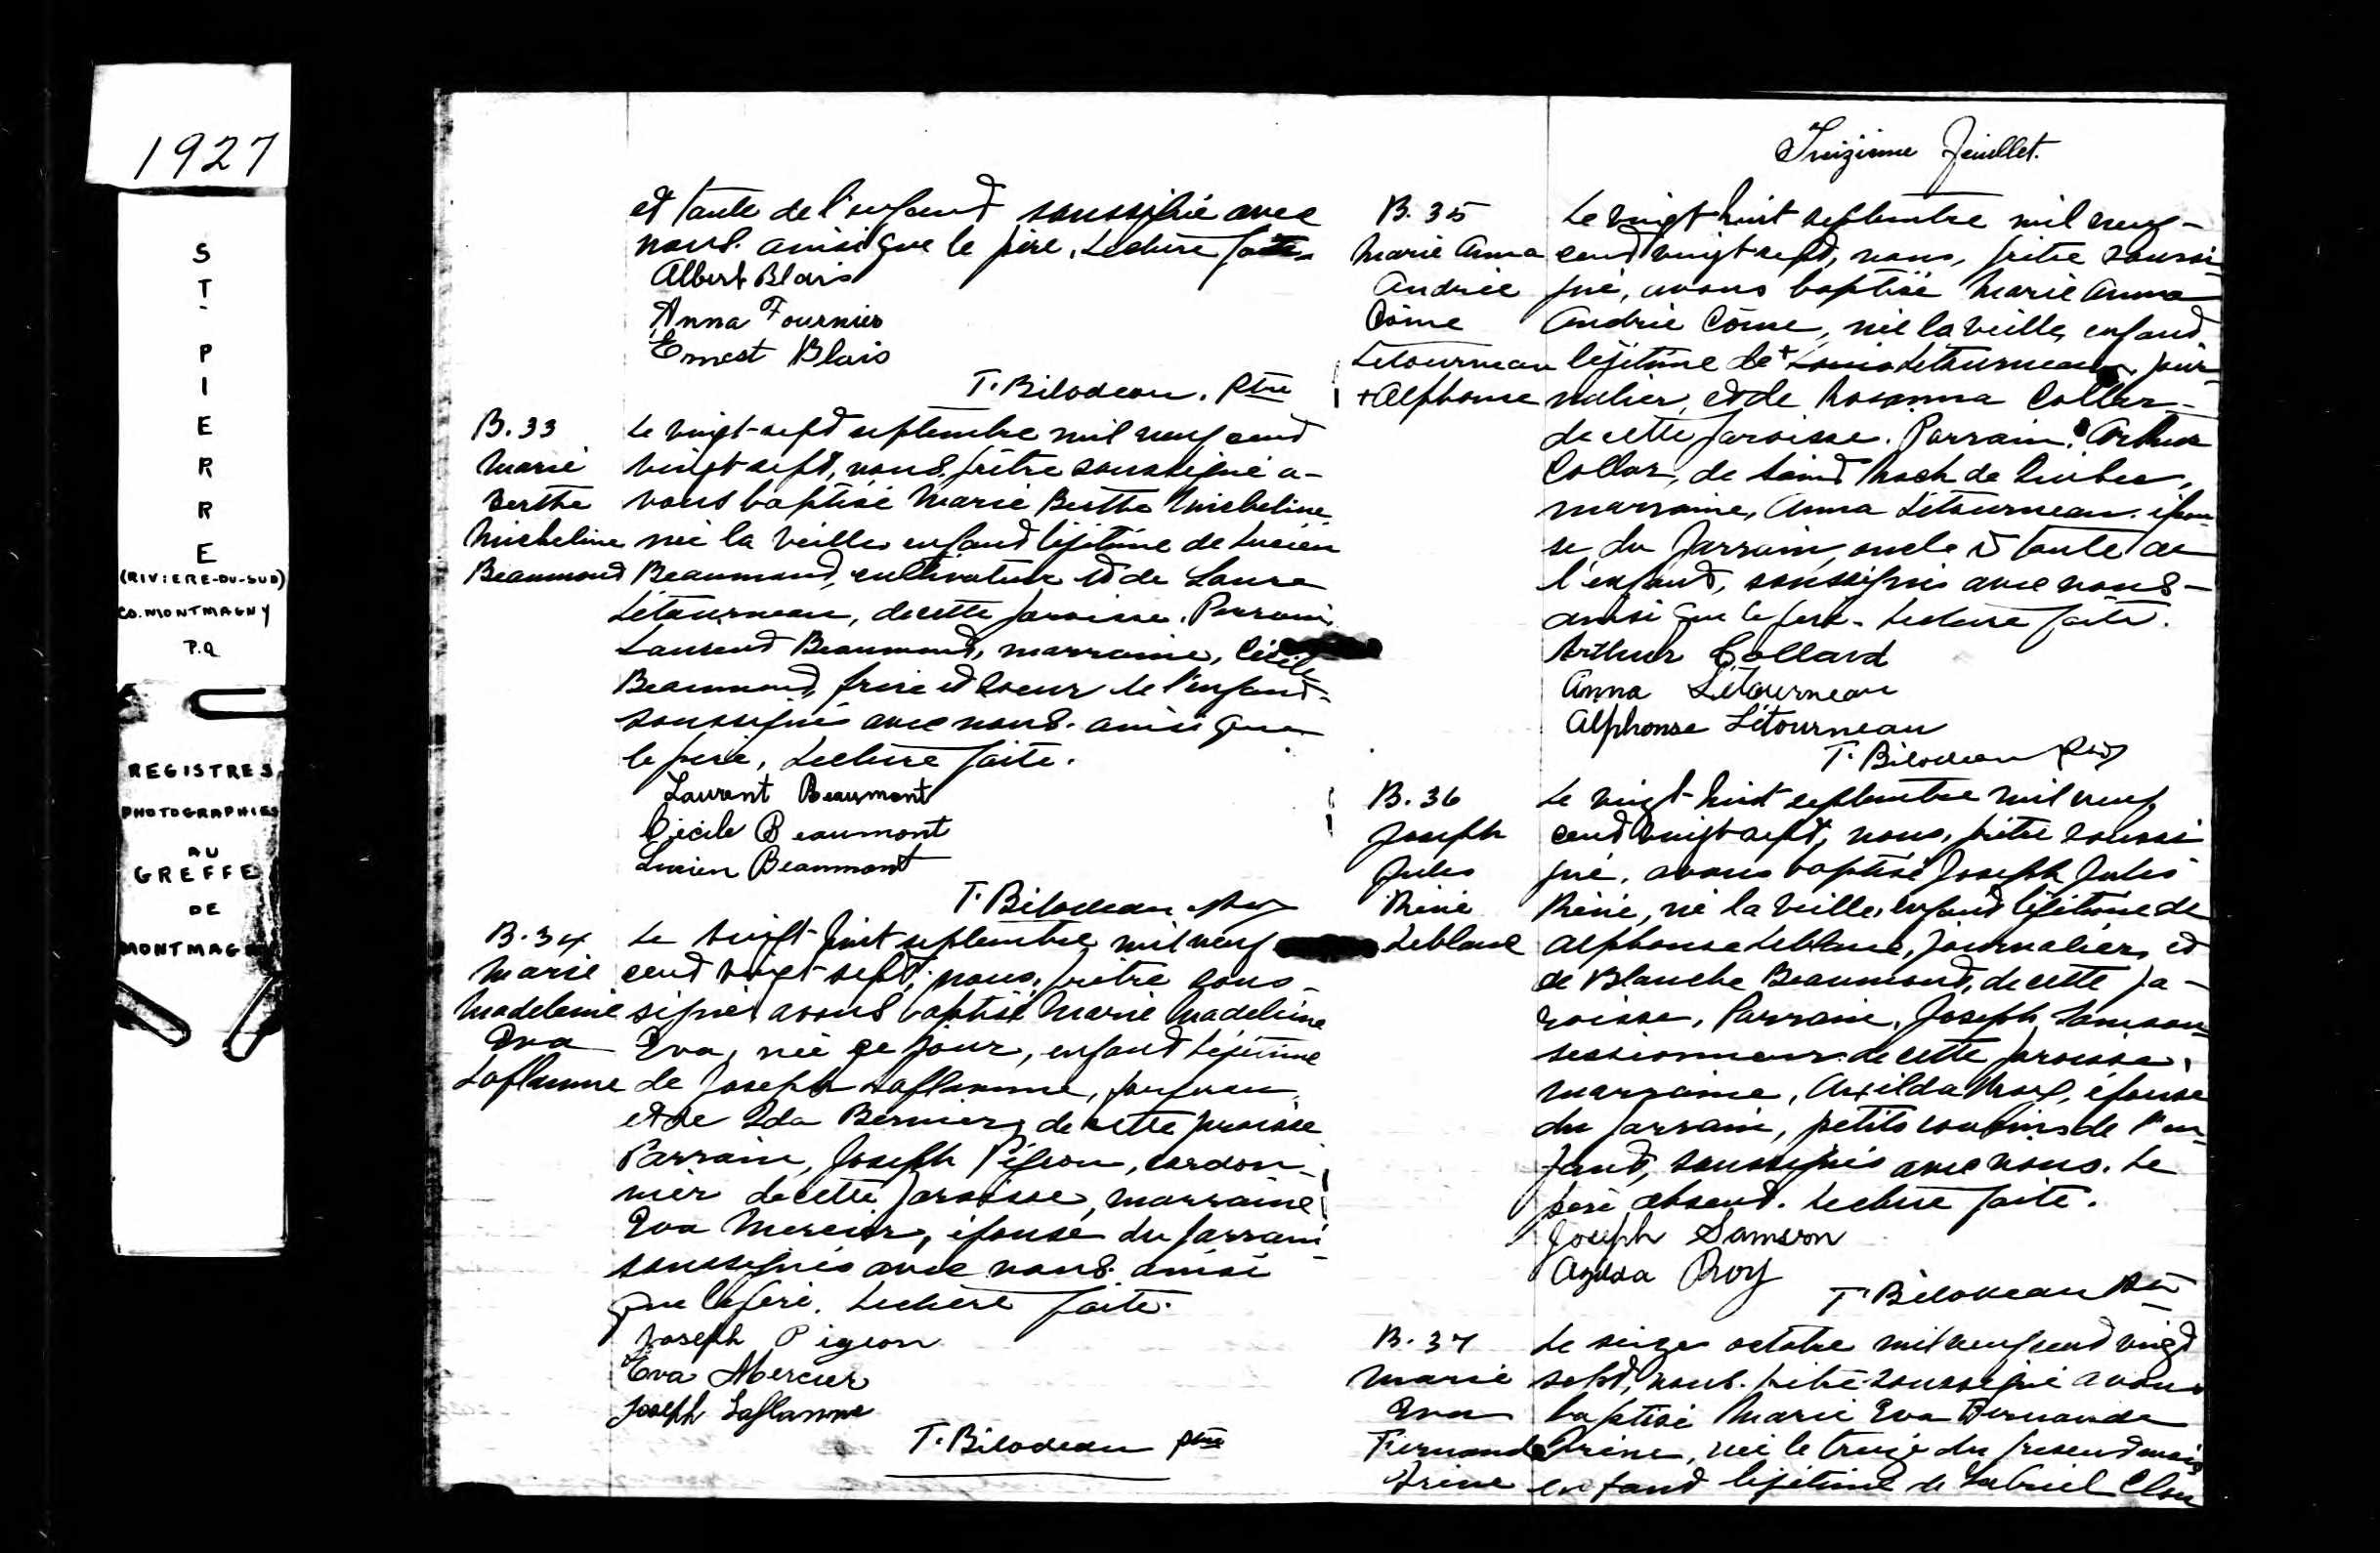 1927
ST
PIERRE
(RIVIERE-DU-SUD)
CO. MONTMAGNY
P.Q
REGISTRES
PHOTOGRAPHIES
AU
GREFFE
DE
MONTMAGNY
et tante de l'enfant soussigné avec
nous ainsi que le père. Lecture faite.
Albert Blais
Anna Fournier
Ernest Blais
T. Bilodeau, Ptre
B. 33
Marie
Berthe
Micheline
Beaumond
Le vingt-sept septembre mil neuf cent
vingt sept, nous, prêtre soussigné a-
vons baptisé Marie Berthe Micheline
née la veille, enfant légitime de Lucien
Beaumond, cultivateur et de Laure
Létourneau, de cette paroisse. Parrain,
Laurend Beaumond, marraine, Cécile
Beaumond, frère et soeur de l'enfant
soussignés avec nous. ainsi que
le père, Lecture faite.
Laurent Beaumont
Cécile Beaumont
Lucien Beaumont
T. Bilodeau
B. 34
Marie
Madeleine
Eva
Laflamme
Le vingt-huit septembre mil neuf
cent vingt-sept, nous, prêtre sous-
signé avons baptisé Marie Madeleine
Eva, née ce jour, enfant légitime
de Joseph Laflamme,
et de Ida Bernier, de cette paroisse
Parrain, Joseph Pigeon, cordon-
nier de cette paroisse, marraine
Eva Mercier, épouse du parrain
soussignés avec nous ainsi
que le père. Lecture faite.
Joseph Pigeon
Eva Mercier
Joseph Laflamme
T. Bilodeau ptre
Treizième feuillet.
B. 35
Marie Anna
Andrée
Côme
Létourneau
+ Alphonse
Le vingt-huit septembre mil neuf-
cent vingt sept, nous, prêtre soussi-
gné, avons baptisé Marie Anna
Andrée Côme, née la veille, enfant
légitime de + Louis Létourneau, jour-
nalier, et de Rosanna Collar-
de cette paroisse. Parrain, Arthur
Collar, de Saint Roch de Québec,
marraine, Anna Létourneau, épou-
se du parrain, oncle et tante de
l'enfant, soussignés avec nous-
ainsi que le père. Lecture faite.
Arthur Collard
Anna Létourneau
Alphonse Létourneau
T. Bilodeau
B. 36
Joseph
Jules
Réné
Leblanc
Le vingt-huit septembre mil neuf
cent vingt sept, nous, prêtre soussi
gné, avons baptisé Joseph Jules
Réné, né la veille, enfant légitime de
Alphonse Leblanc, journalier, et
de Blanche Beaumond, de cette pa-
roisse, Parrain, Joseph Samson
sectionneur de cette paroisse,
marraine, Axilda Roy, épouse
du parrain, petits cousins de l'en-
fant, soussignés avec nous. Le
père absent. Lecture faite.
Joseph Samson
Azilda Roy
T. Bilodeau Ptre
B. 37
Marie
Eva
Fernande
Irène
Le seize octobre mil neuf cent vingt
sept, nous, prêtre soussigné avons
baptisé Marie Eva Fernande
Irène, née le treize du présent mois
enfant légitime de Gabriel